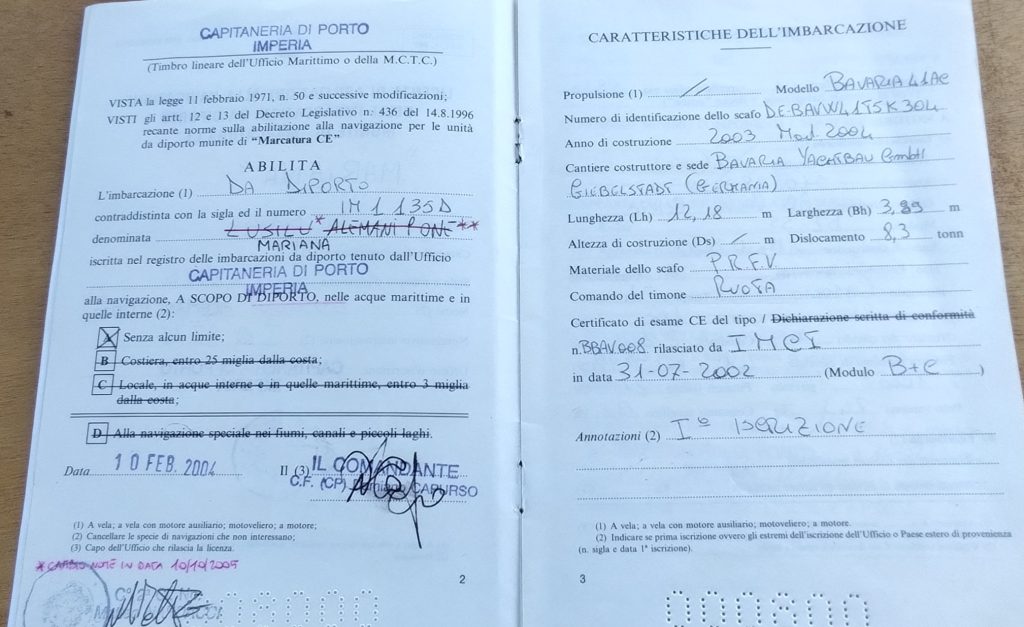 CAPITANERIA DI PORTO
IMPERIA
(Timbro lineare dell'Ufficio Marittimo o della M.C.T.C.)
VISTA la legge 11 febbraio 1971, n. 50 e successive modificazioni;
VISTI gli artt. 12 e 13 del Decreto Legislativo n. 436 del 14.8.1996
recante norme sulla abilitazione alla navigazione per le unità
da diporto munite di "Marcatura CE"
ABILITA
L'imbarcazione (1) DA DIPORTO
contraddistinta con la sigla ed il numero IM 1135D
denominata LUSILU* ALEMANI PONE**
MARIANA
iscritta nel registro delle imbarcazioni da diporto tenuto dall'Ufficio
CAPITANERIA DI PORTO
IMPERIA
alla navigazione, A SCOPO DI DIPORTO, nelle acque marittime e in
quelle interne (2):
A Senza alcun limite;
B Costiera, entro 25 miglia dalla costa;
C Locale, in acque interne e in quelle marittime, entro 3 miglia
dalla costa;
D Alla navigazione speciale nei fiumi, canali e piccoli laghi.
Data 10 FEB. 2004 Il (3) IL COMANDANTE
C.F. (CP) CAPURSO
(1) A vela; a vela con motore ausiliario; motoveliero; a motore;
(2) Cancellare le specie di navigazioni che non interessano;
(3) Capo dell'Ufficio che rilascia la licenza.
* CAMBIO NOTE IN DATA 10/10/2005
2
CARATTERISTICHE DELL'IMBARCAZIONE
Propulsione (1) // Modello BAVARIA 41AC
Numero di identificazione dello scafo DE-BAVW41T5K304
Anno di costruzione 2003 Mod. 2004
Cantiere costruttore e sede BAVARIA YACHTBAU GmbH
GIEBELSTADT (GERMANIA)
Lunghezza (Lh) 12,18 m Larghezza (Bh) 3,89 m
Altezza di costruzione (Ds) / m Dislocamento 8,3 tonn
Materiale dello scafo P.R.F.V
Comando del timone RUOTA
Certificato di esame CE del tipo / Dichiarazione scritta di conformità
n. BBAV008 rilasciato da IMCI
in data 31-07-2002 (Modulo B+C)
Annotazioni (2) I° ISCRIZIONE
(1) A vela; a vela con motore ausiliario; motoveliero; a motore.
(2) Indicare se prima iscrizione ovvero gli estremi dell'iscrizione dell'Ufficio o Paese estero di provenienza
(n. sigla e data 1ª iscrizione).
3